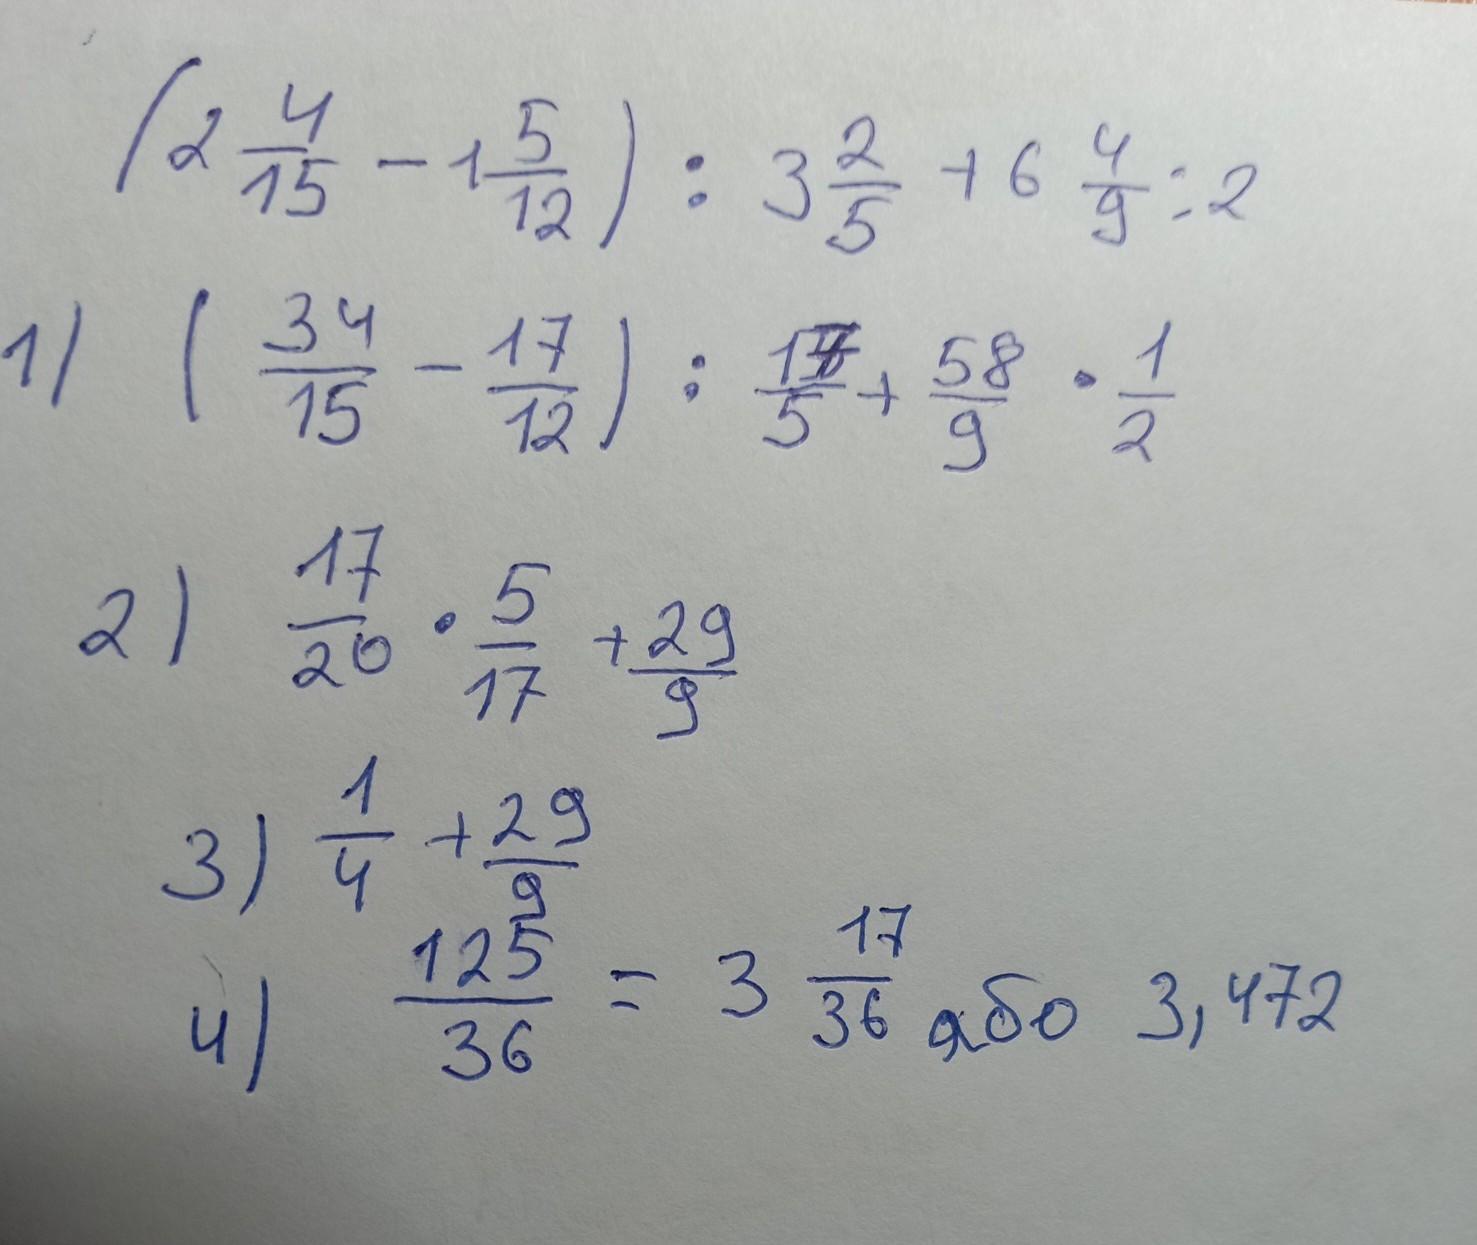 (2 4/15 - 1 5/12) : 3 2/5 + 6 4/9 : 2
1) (34/15 - 17/12) : 17/5 + 58/9 · 1/2
2) 17/20 · 5/17 + 29/9
3) 1/4 + 29/9
4) 125/36 = 3 17/36 або 3,472